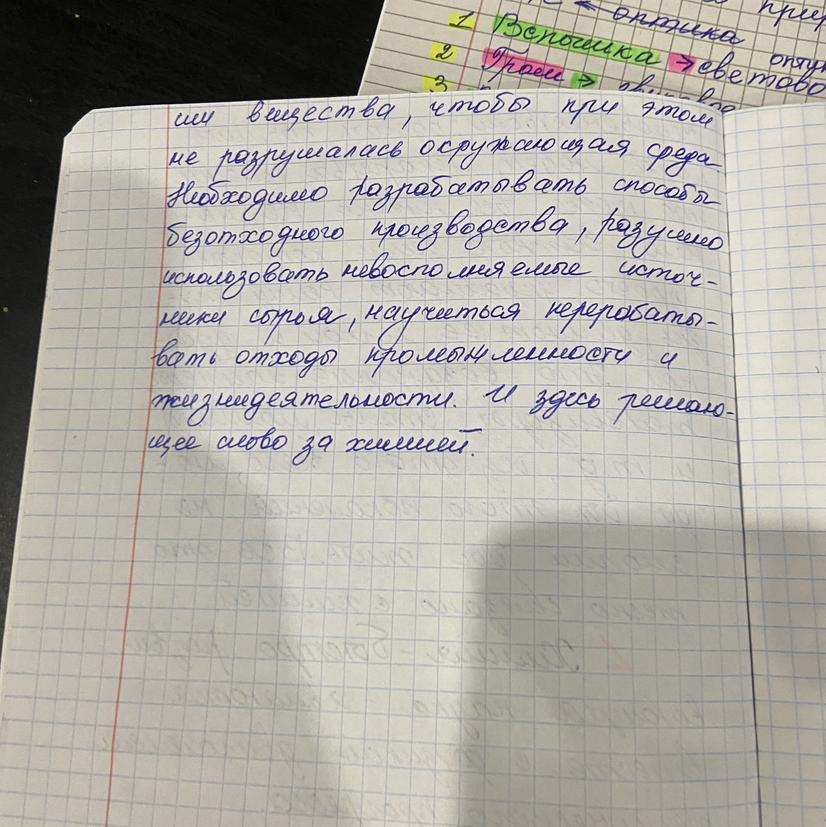 оптика
при
1 Вспышка → светово
опти
2 Гром →
3
ши вещества, чтобы при этом
не разрушалась окружающая среда.
Необходимо разрабатывать способы
безотходного производства, разумно
использовать невосполняемые источ-
ники сырья, научиться перерабаты-
вать отходы промышленности и
жизнидеятельности. И здесь решаю-
щее слово за химией.